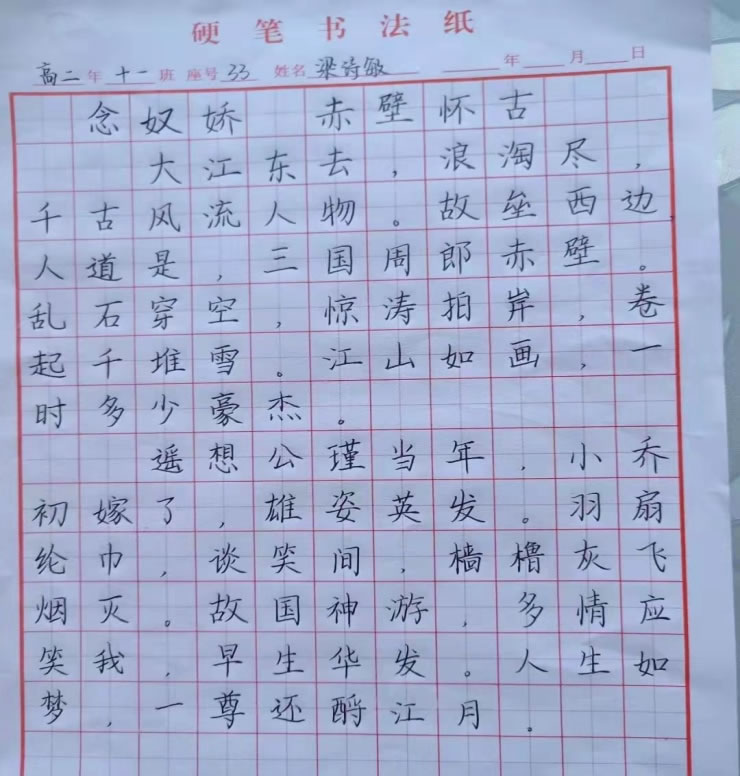 硬笔书法纸
高二年十一班 座号33 姓名梁诗敏 年 月 日
念奴娇 赤壁怀古
大江东去，浪淘尽，
千古风流人物。故垒西边
人道是，三国周郎赤壁。
乱石穿空，惊涛拍岸，卷
起千堆雪。江山如画，一
时多少豪杰。
遥想公瑾当年，小乔
初嫁了，雄姿英发。羽扇
纶巾，谈笑间，樯橹灰飞
烟灭。故国神游，多情应
笑我，早生华发。人生如
梦，一尊还酹江月。